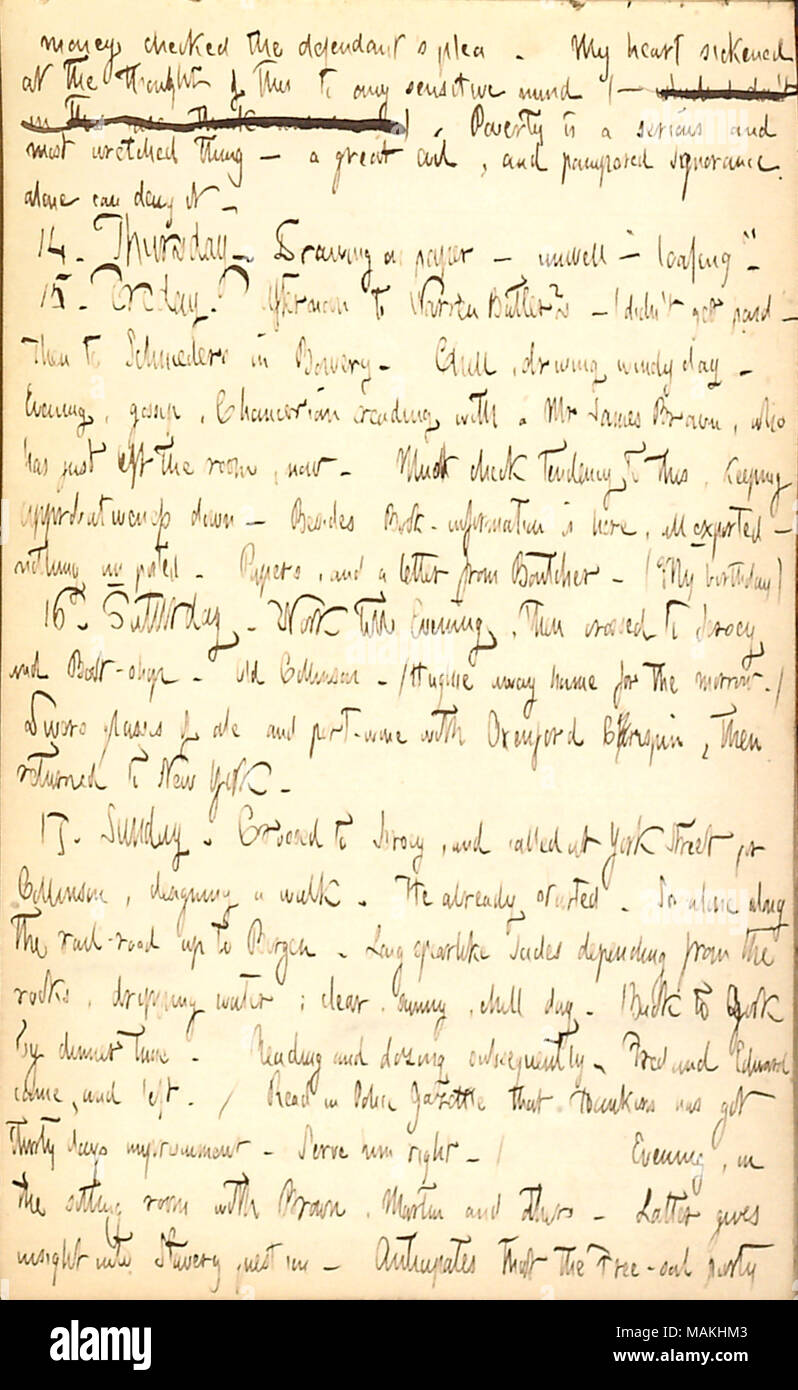 money checked the defendant's plea. My heart sickened
at the thought of this to any sensitive mind (—
Poverty is a serious and
most wretched thing — a great evil, and pampered ignorance
alone can deny it —
14. Thursday. Drawing on paper — unwell — "loafing" —
15. Friday. Afternoon to Warren Butler's — (didn't get paid —
then to Schmeders in Bowery — Chill, driving windy day —
Evening, gossip, Chaucerian reading with a Mr James Brown, who
has just left the room, now — Must check tendency to this, keeping
approbativeness down — Besides Book-information is here, all exported —
nothing imported. Papers, and a letter from Boutcher — (My birthday)
16. Saturday. Work till Evening, then crossed to Jersey
and Boat-shop. Old Collinson — (Hughie away home for the morrow.)
Divers glasses of ale and port-wine with Oxenford, then
returned to New York —
17. Sunday. Crossed to Jersey, and called at York Street for
Collinson, designing a walk. He already started. So alone along
the rail-road up to Bergen. Long spearlike icicles depending from the
rocks, dripping water; clear, sunny, chill day. Back to York
by dinner time. Reading and dozing subsequently. Fred and Edward
came, and left. / Read in Police Gazette that has got
thirty days imprisonment — Serve him right — / Evening, in
the sitting room with Brown, Martin and others — Latter gives
insight into Slavery question — Anticipates that the Free-soil party
alamy
Image ID: MAKHM3
www.alamy.com